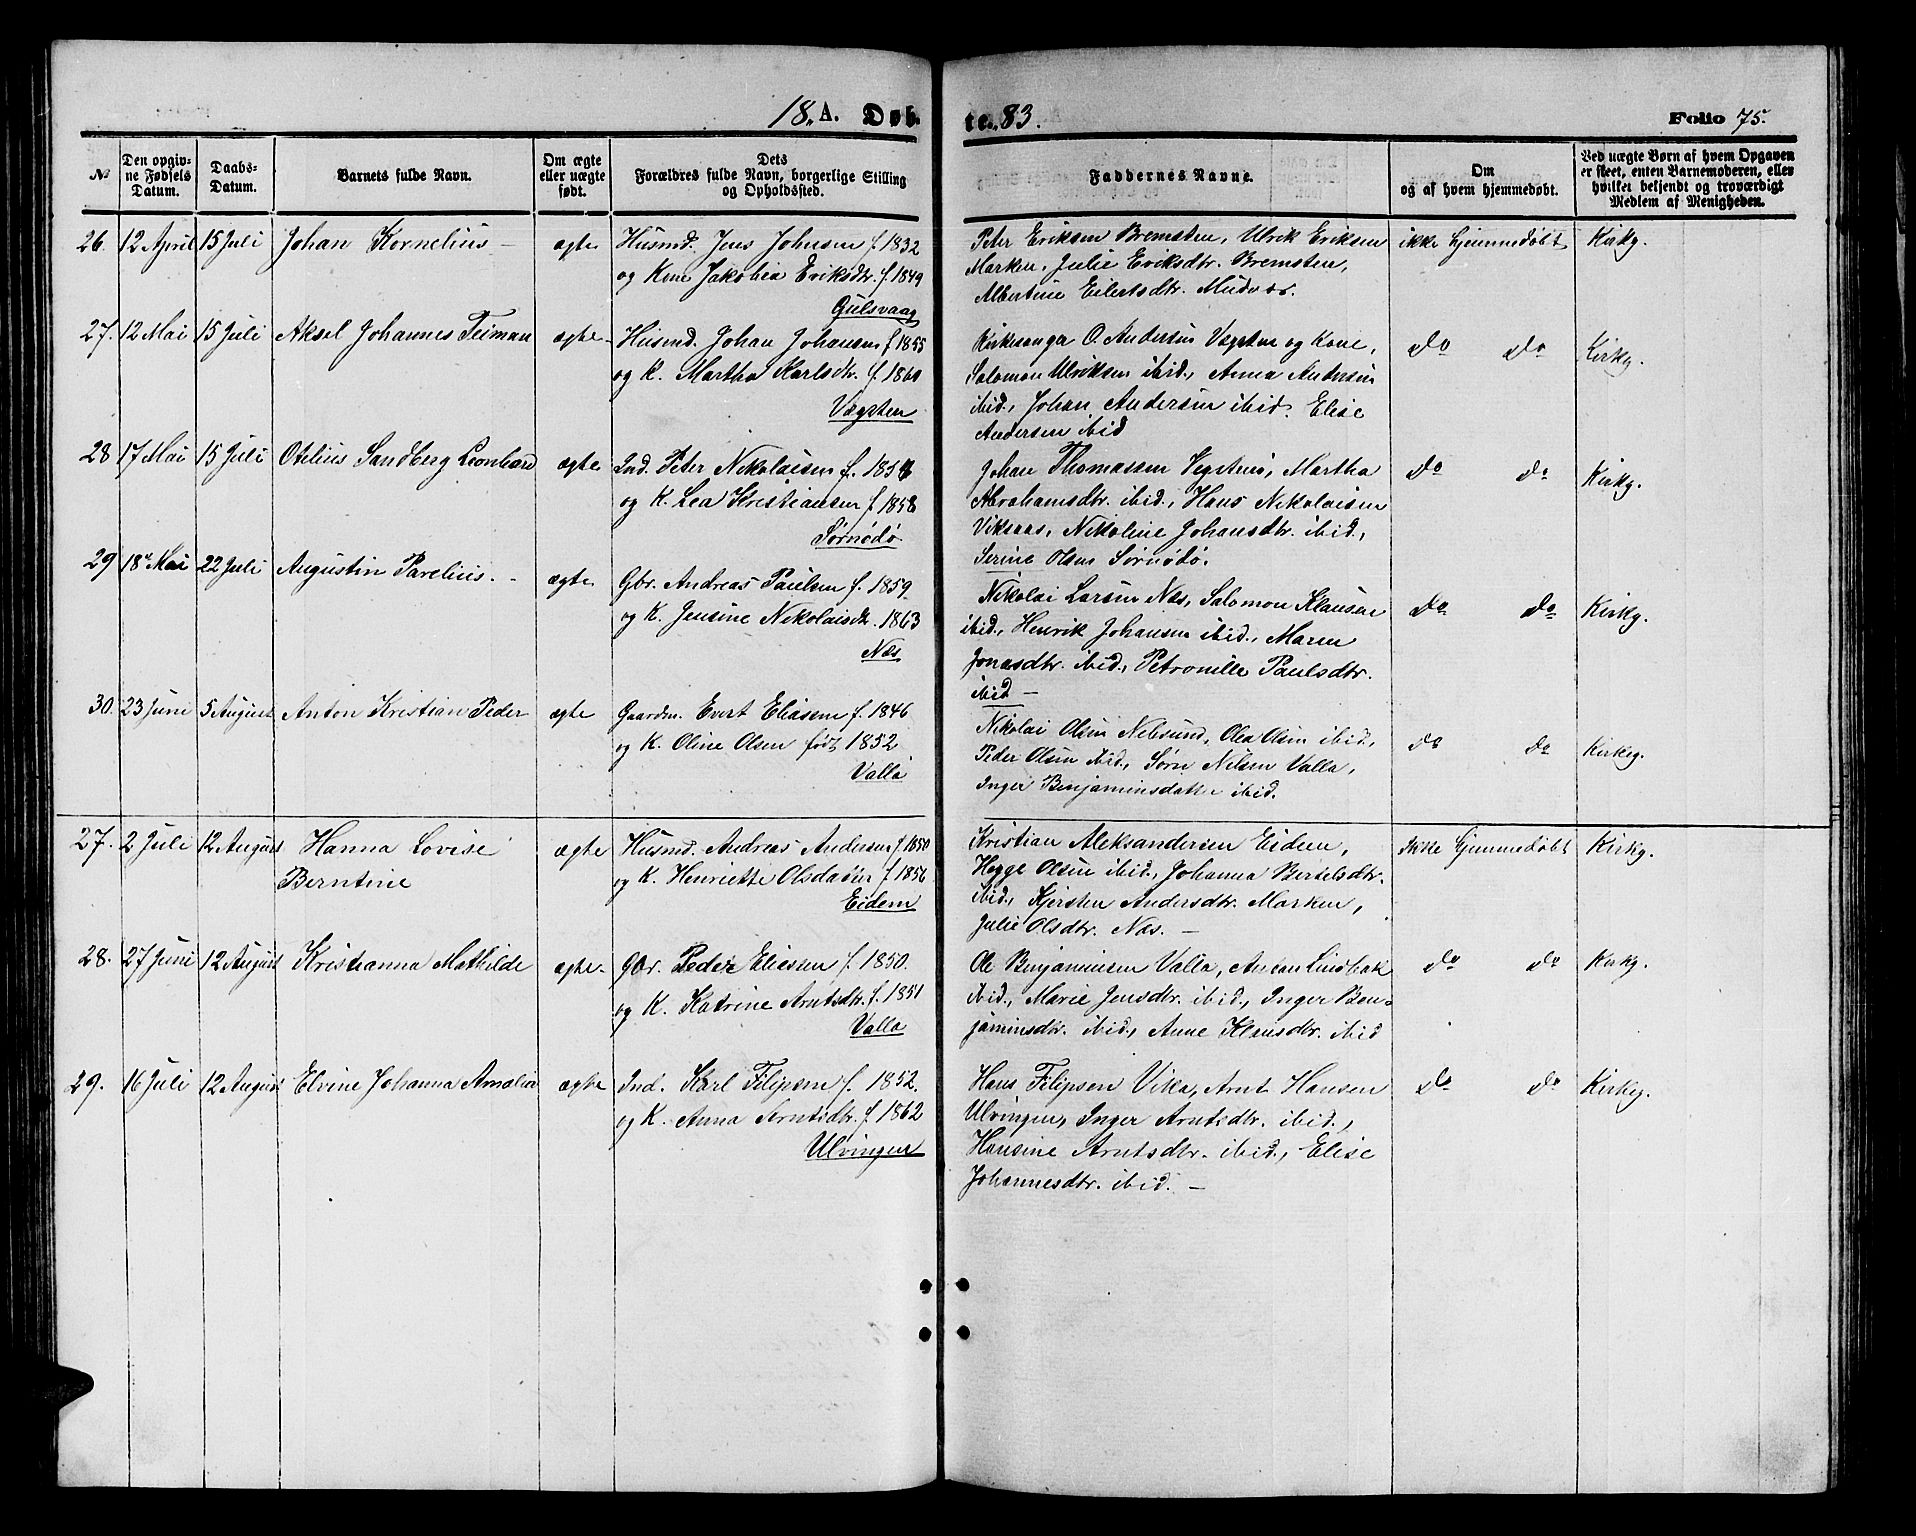 18 A. Døb-
te. 83.
Folio 75.
№
Den opgiv-
ne Fødsels
Datum.
Daabs-
Datum.
Barnets fulde Navn.
Om ægte
eller uægte
født.
Dets
Forældres fulde Navn, borgerlige Stilling
og Opholdssted.
Faddernes Navne.
Om
og af hvem hjemmedøbt.
Ved uægte Børn af hvem Opgaven
er skeet, enten Barnemoderen, eller
hvilket bekjendt og troværdigt
Medlem af Menigheden.
26. 12 April 15 Juli Johan Kornelius – ægte
Husmd. Jens Johnsen f. 1832
og Kone Jakobia Eriksdtr. f. 1849
Gulsvaag
Peter Eriksen Bremsten, Ulrik Eriksen
Marken, Julie Eriksdtr. Bremsten,
Albertine Eilertsdtr. Mudvær.
ikke hjemmedøbt Kirkg.
27. 12 Mai 15 Juli Aksel Johannes Teiman ægte
Husmd. Johan Johansen f 1855
og K. Martha Karlsdtr. f. 1860
Vægsten
Kirkesanger O. Andersen Vægsten og Kone,
Salomon Ulriksen ibid., Anna Andersen
ibid., Johan Andersen ibid. Elise
Andersen ibid
do do Kirkg.
28 17 Mai 15 Juli Otelius Sandberg Leonhard ægte
Ind. Peter Nikolaisen f. 1854
og K. Lea Kristiansen f. 1858
Sørnødø
Johan Thomassen Vegstenø, Martha
Abrahamsdtr. ibid., Hans Nikolaisen
Viksaas, Nikoline Johansdtr. ibid.,
Serine Olsen Sørnødø.
do do Kirkg.
29 18de Mai 22 Juli Augustin Parelius. – ægte
Gbr. Andreas Paulsen f. 1859
og K. Jensine Nikolaisdtr. 1863
Næs
Nikolai Larsen Næs, Salomon Klausen
ibid., Henrik Johansen ibid., Maren
Jonasdtr. ibid., Petronille Paulsdtr.
ibid –
do do Kirkg.
30. 23 Juni 5 August Anton Kristian Peder ægte
Gaardm. Evert Eliasen f. 1846
og K. Oline Olsen født 1852
Valla
Nikolai Olsen Nebsund, Olea Olsen ibid,
Peder Olsen ibid., Sørn Nilsen Valla,
Inger Benjaminsdatter ibid.
do do Kirkeg.
27. 2 Juli 12 August Hanna Lovise
Berntine
ægte
Husmd. Andreas Andersen f 1850
og K. Henriette Olsdatter f 1856
Eidem
Kristian Aleksandersen Eidem,
Hegge Olsen ibid., Johanna Bertelsdtr.
ibid., Kjersten Andersdtr. Marken,
Julie Olsdtr. Næs. –
Ikke hjemmedøbt Kirkg.
28. 27 Juni 12 August Kristianna Mathilde ægte
Gbr. Peder Eliesen f. 1850.
og K. Katrine Arntsdtr. f. 1851
Valla
Ole Benjaminsen Valla, Anton Lindbak
ibid., Marie Jensdtr. ibid., Inger Ben-
jaminsdtr. ibid., Anne Klausdtr. ibid
do do Kirkg.
29. 16 Juli 12 August Elvine Johanna Amalia ægte
Ind. Karl Filipsen f. 1852.
og K. Anna Arntsdtr. f. 1862
Ulvingen
Hans Filipsen Vika, Arnt Hansen
Ulvingen, Inger Arntsdtr. ibid.,
Hansine Arntsdtr. ibid., Elise
Johannesdtr. ibid. –
do do Kirkeg.